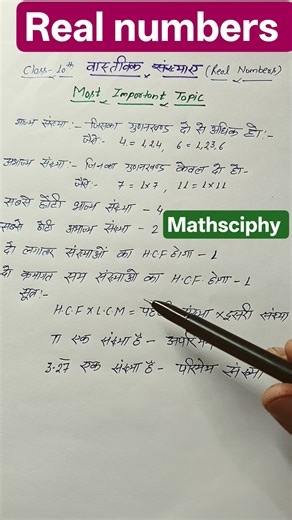 Real numbers
Class- 10th वास्तविक संख्याएं (Real Numbers)
Most Important Topic
भाज्य संख्या :- जिसका गुणनखण्ड दो से अधिक हो :-
जैसे:- 4 = 1,2,4, 6 = 1,2,3,6
अभाज्य संख्या :- जिनका गुणनखण्ड केवल दो हो-
जैसे:- 7 = 1×7, 11 = 1×11
सबसे छोटी भाज्य संख्या - 4
सबसे छोटी अभाज्य संख्या - 2
Mathsciphy
दो लगातार संख्याओं का HCF होगा - 1
दो क्रमागत सम संख्याओं का H.C.F. होगा - 1
सूत्र:-
H.C.F × L.C.M = पहली संख्या × दूसरी संख्या
π एक संख्या है - अपरिमेय
3.27 एक संख्या है - परिमेय संख्या